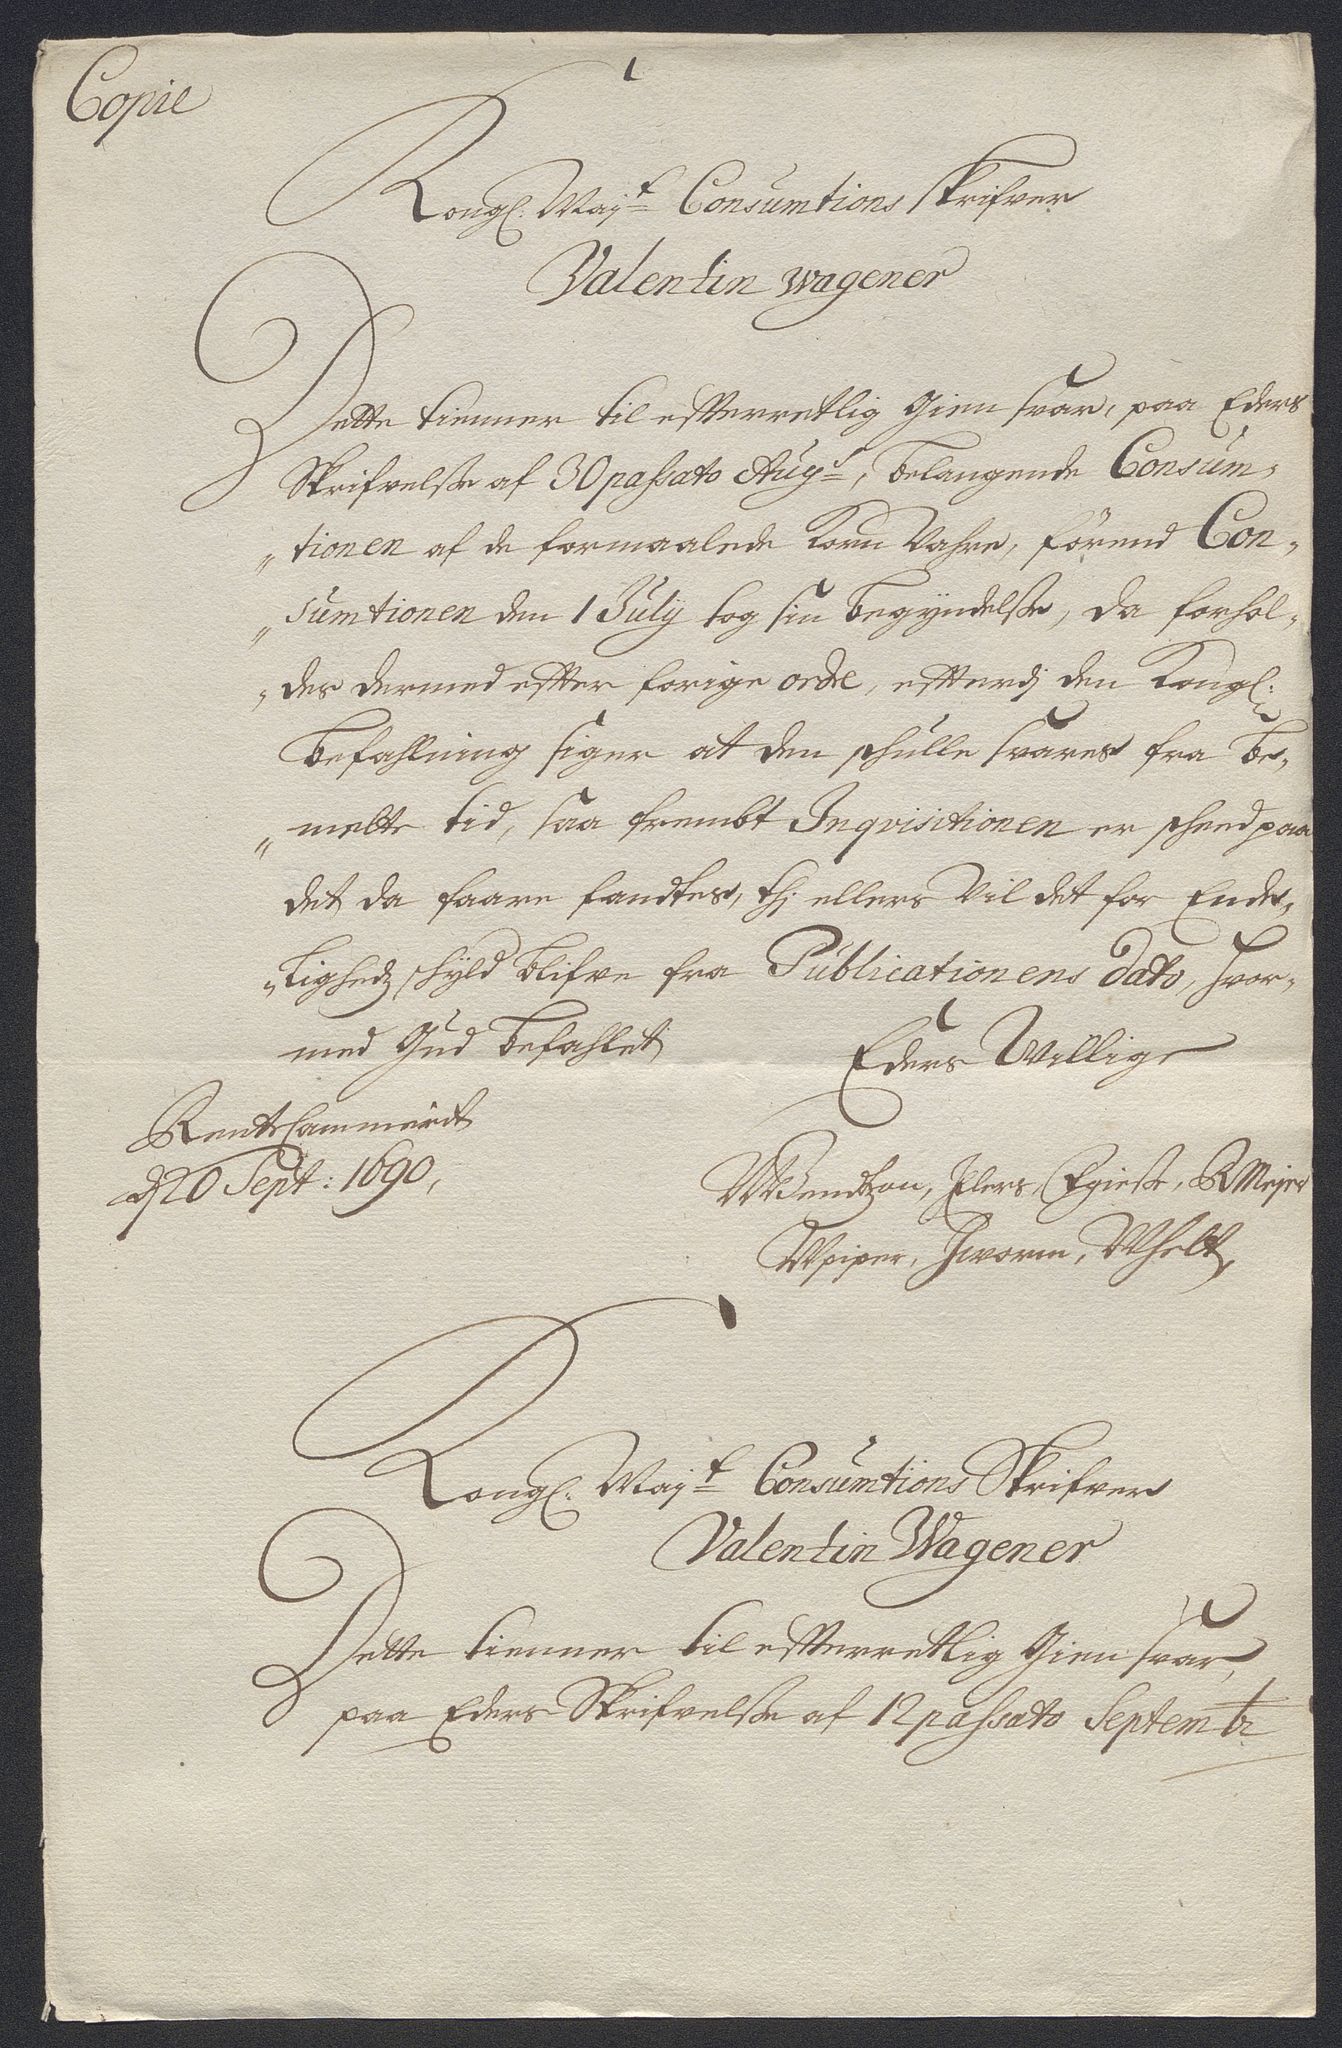 Copie
Kongl: Maytt Consumtions Skrifver
Valentin Wagener
Dette tienner til efterretlig Giensvar, paa Eders
Skrifvelße af 30 passato Augt, belangende Consum-
"tionen af de formaalede Korn Vahre, förend Con-
"sumtionen den 1 July tog sin begyndelße, da forhol-
"des dermed efter forige ordre, efterdj den Kongl:
befahlning siger at den schulle svares fra be-
"melte tid, saa frembt Inqvisitionen er scheed paa
det da faare fandtes, thj ellers vil det for Ende-
"lighedz schyld blifve fra Publicationens Dato, hvor-
med Gud befahlet
Eders Villige
RenteCammeret
d 20 Sept: 1690,
Bendtzon, Ehlers, Giese, R Meyer
Piper, Worm, Whelt,
Kongl: Maytt Consumtions Skrifver
Valentin Wagener
Dette tienner til efterretlig Giensvar,
paa Eders Skrifvelße af 12 passato Septembr